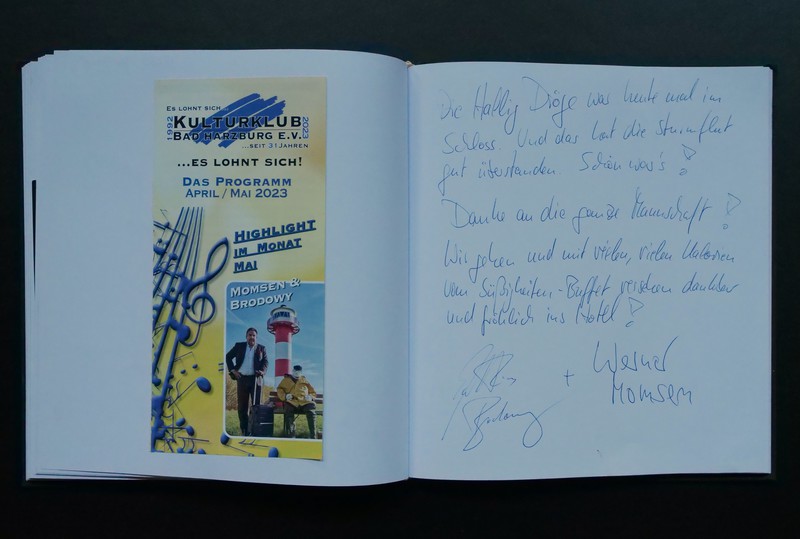 Es lohnt sich...
1992
Kulturklub
2023
Bad Harzburg e.V.
...seit 31 Jahren
...es lohnt sich!
Das Programm
April / Mai 2023
Highlight
im Monat
Mai
Momsen &
Brodowy
Die Hallig Dröge war heute mal im
Schloss. Und das hat die Sturmflut
gut überstanden. Schön war's!
Danke an die ganze Mannschaft!
Wir gehen und mit vielen, vielen Kalorien
vom Süßigkeiten-Buffet versehen dankbar
und fröhlich ins Hotel!
+ Werner
Momsen
Brodowy